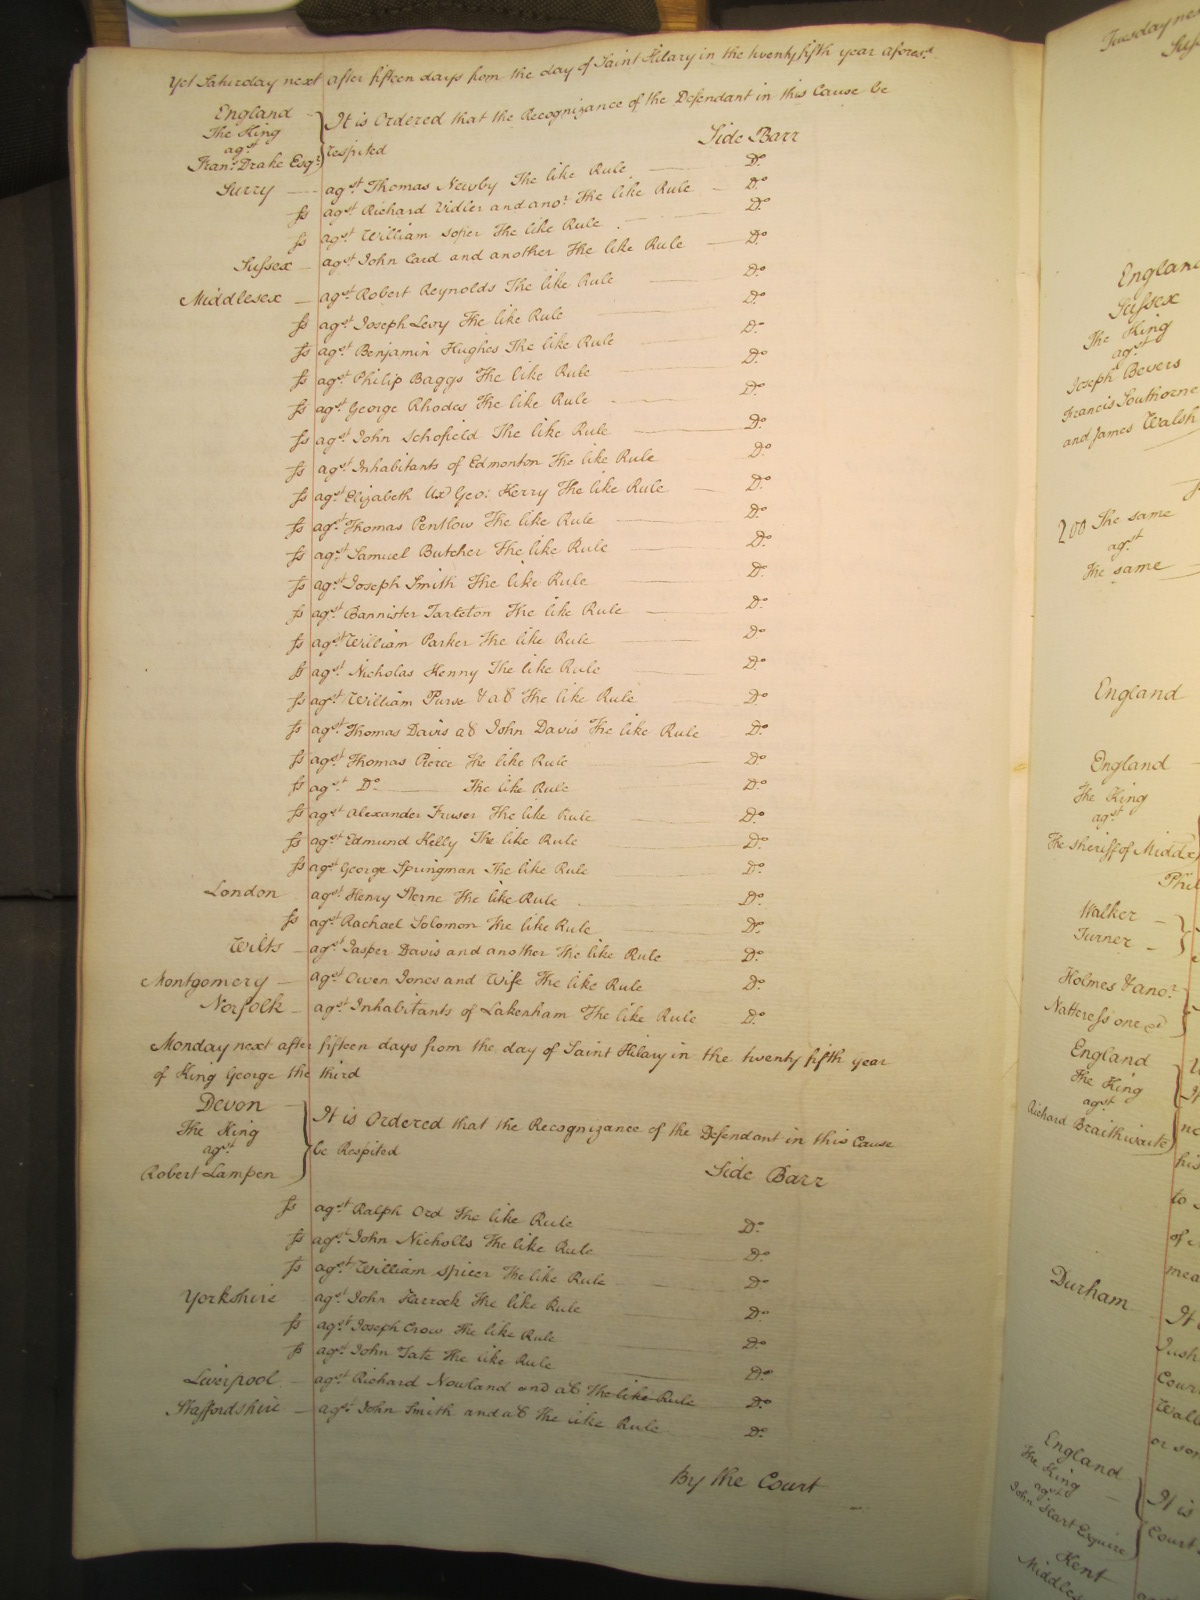 Yet Saturday next after fifteen days from the day of Saint Hilary in the twenty fifth year afores.d
England
The King
ag.st
Fran.s Drake Esq.r
It is Ordered that the Recognizance of the Defendant in this Cause be
respited
Side Barr
Surry ag.st Thomas Newby The like Rule D.o
ss ag.st Richard Vidler and ano.r The like Rule D.o
ss ag.st William Soper The like Rule D.o
Sussex ag.st John Card and another The like Rule D.o
Middlesex ag.st Robert Reynolds The like Rule D.o
ss ag.st Joseph Levy The like Rule D.o
ss ag.st Benjamin Hughes The like Rule D.o
ss ag.st Philip Baggs The like Rule D.o
ss ag.st George Rhodes The like Rule D.o
ss ag.st John Schofield The like Rule D.o
ss ag.st Inhabitants of Edmonton The like Rule D.o
ss ag.st Elizabeth Ux.r Geo: Kerry The like Rule D.o
ss ag.st Thomas Pentlow The like Rule D.o
ss ag.st Samuel Butcher The like Rule D.o
ss ag.st Joseph Smith The like Rule D.o
ss ag.st Bannister Tarleton The like Rule D.o
ss ag.st William Parker The like Rule D.o
ss ag.st Nicholas Kenny The like Rule D.o
ss ag.st William Purse & al The like Rule D.o
ss ag.st Thomas Davis al John Davis The like Rule D.o
ss ag.st Thomas Pierce The like Rule D.o
ss ag.st D.o The like Rule D.o
ss ag.st Alexander Fraser The like Rule D.o
ss ag.st Edmund Kelly The like Rule D.o
ss ag.st George Springman The like Rule D.o
London ag.st Henry Sterne The like Rule D.o
ss ag.st Rachael Solomon The like Rule D.o
Wilts ag.st Jasper Davis and another The like Rule D.o
Montgomery ag.st Owen Jones and Wife The like Rule D.o
Norfolk ag.st Inhabitants of Lakenham The like Rule D.o
Monday next after fifteen days from the day of Saint Hilary in the twenty fifth year
of King George the third
Devon
The King
ag.st
Robert Lampen
It is Ordered that the Recognizance of the Defendant in this Cause
be Respited
Side Barr
ss ag.st Ralph Ord The like Rule D.o
ss ag.st John Nicholls The like Rule D.o
ss ag.st William Spicer The like Rule D.o
Yorkshire ag.st John Harrock The like Rule D.o
ss ag.st Joseph Crow The like Rule D.o
ss ag.st John Tate The like Rule D.o
Liverpool ag.st Richard Nowland and al The like Rule D.o
Staffordshire ag.st John Smith and al The like Rule D.o
By the Court
Tuesday
England
Sussex
The King
ag.st
Joseph Bevers
Francis Southorne
and James Walsh
200 The same
ag.st
The same
England
England
The King
ag.st
The Sheriff of Midd.x
Walker
Turner
Holmes & ano.r
Nattress one
England
The King
ag.st
Richard Braithwaite
his
to
of
Durham
It
Court
or
England
The King
ag.st
John Hart Esquire
It is
Court
Kent